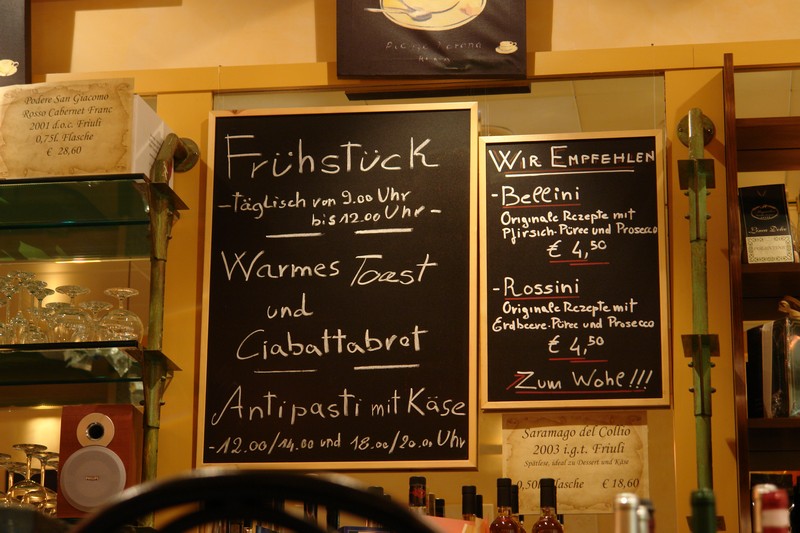 Podere San Giacomo
Rosso Cabernet Franc
2001 d.o.c. Friuli
0,75L Flasche
€ 28,60
Frühstück
-täglisch von 9.00 Uhr
bis 12.00 Uhr-
Warmes Toast
und
Ciabattabret
Antipasti mit Käse
-12.00/14.00 und 18.00/20.00 Uhr
Wir Empfehlen
-Bellini
Originale Rezepte mit
Pfirsich-Püree und Prosecco
€ 4,50
-Rossini
Originale Rezepte mit
Erdbeere-Püree und Prosecco
€ 4,50
Zum Wohl!!!
Saramago del Collio
2003 i.g.t. Friuli
Spätlese, ideal zu Dessert und Käse
0,50l Flasche € 18,60